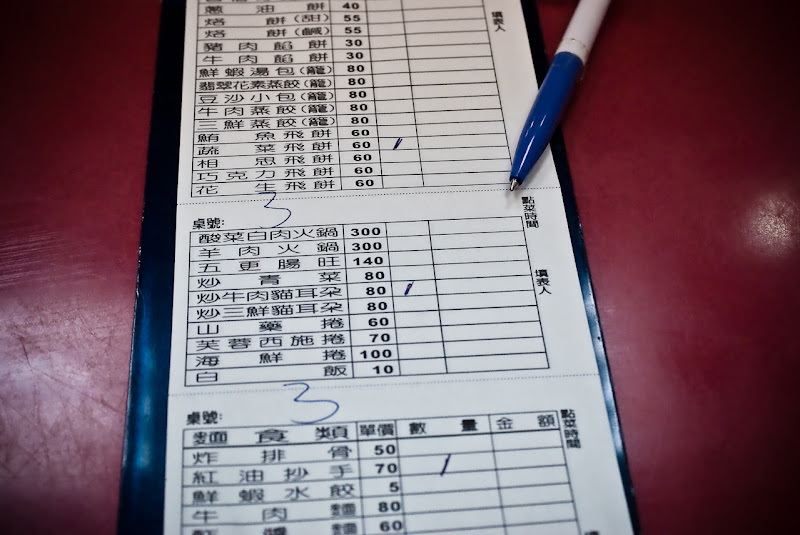 蔥油餅 40
烙餅(甜) 55
烙餅(鹹) 55
豬肉餡餅 30
牛肉餡餅 30
鮮蝦湯包(籠) 80
翡翠花素蒸餃(籠) 80
豆沙小包(籠) 80
牛肉蒸餃(籠) 80
三鮮蒸餃(籠) 80
鮪魚飛餅 60
蔬菜飛餅 60 /
相思飛餅 60
巧克力飛餅 60
花生飛餅 60
填表人
桌號: 3
點菜時間
酸菜白肉火鍋 300
羊肉火鍋 300
五更腸旺 140
炒青菜 80
炒牛肉貓耳朵 80 /
炒三鮮貓耳朵 80
山藥捲 60
芙蓉西施捲 70
海鮮捲 100
白飯 10
填表人
桌號: 3
點菜時間
麵食類 單價 數量 金額
炸排骨 50
紅油抄手 70 /
鮮蝦水餃 5
牛肉麵 80
60